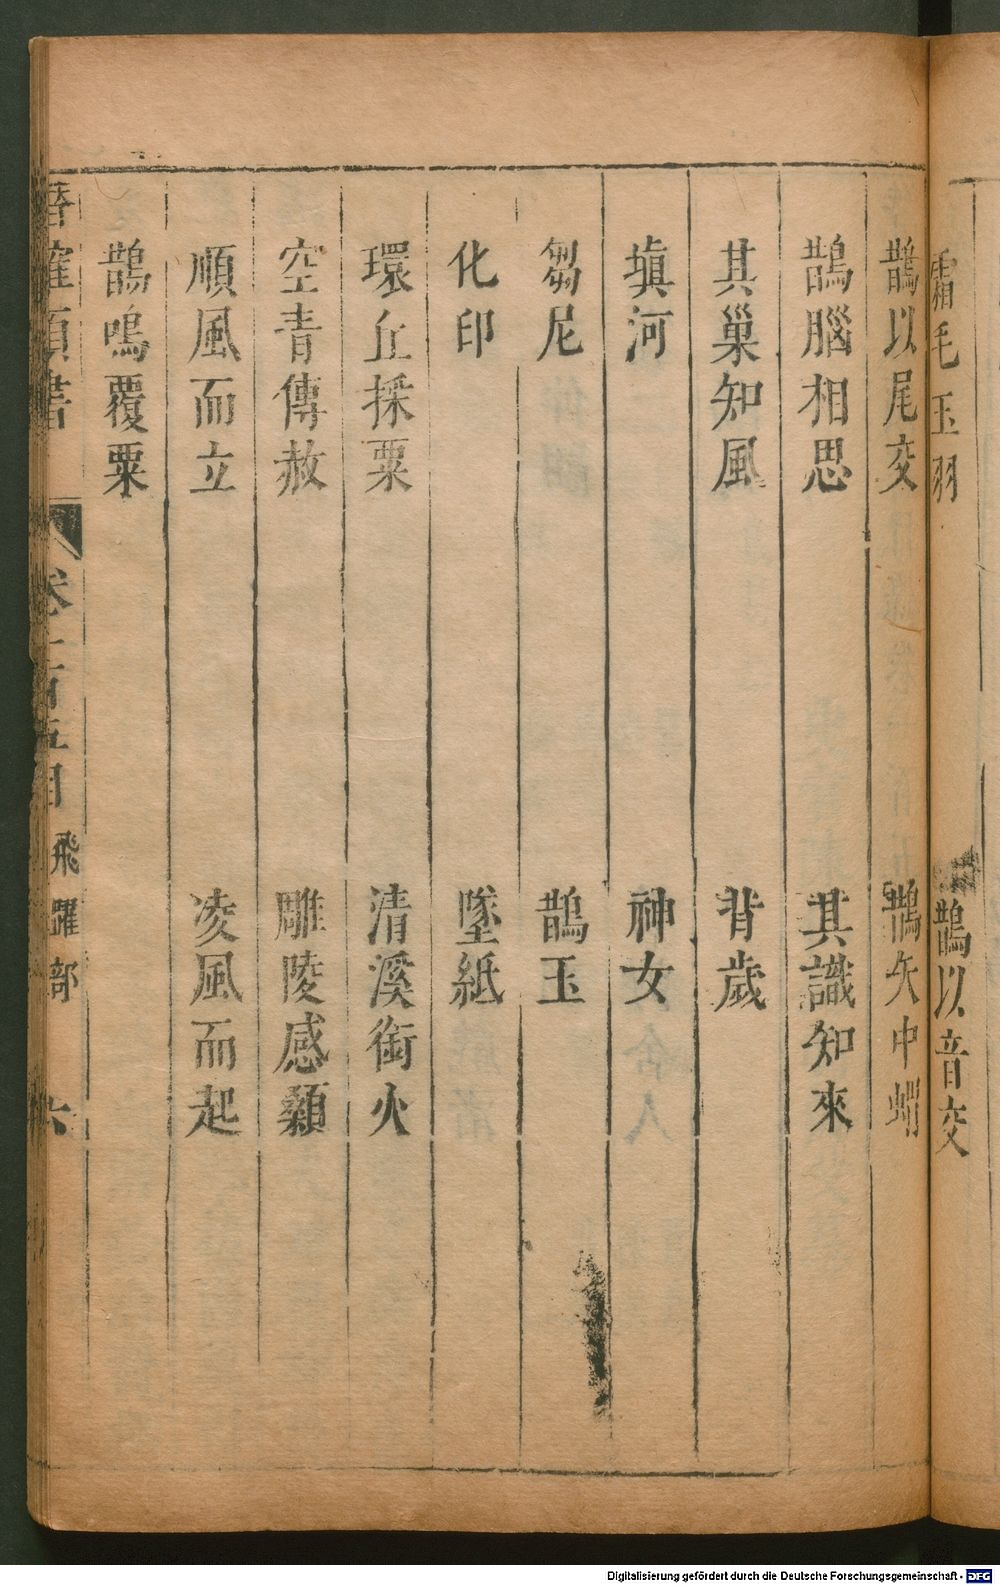 霜毛玉羽　鵲以音交
鵲以尾交　鵲矢中蝟
鵲腦相思　其識知來
其巢知風　背歲
塡河　神女
芻尼　鵲玉
化印　墜紙
環丘採粟　清溪銜火
空青傳赦　雕陵感顙
順風而立　凌風而起
鵲鳴覆粟
確類書　卷一百五目　飛躍部　六
Digitalisierung gefördert durch die Deutsche Forschungsgemeinschaft - DFG